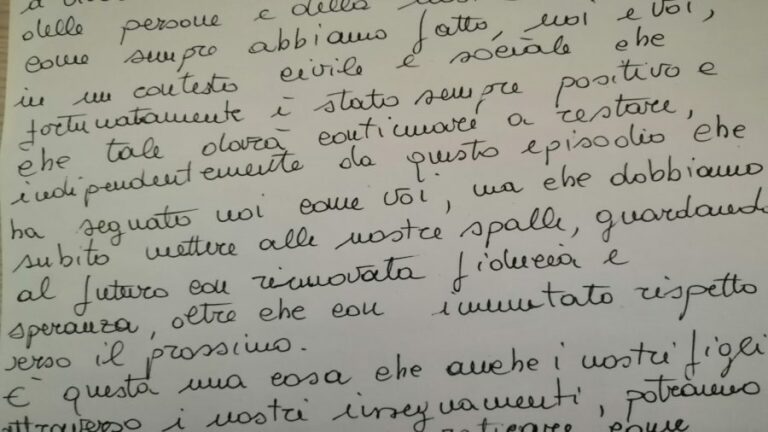 delle persone e della
come sempre abbiamo fatto, noi e voi,
in un contesto civile e sociale che
fortunatamente è stato sempre positivo e
che tale dovrà continuare a restare,
indipendentemente da questo episodio che
ha segnato noi come voi, ma che dobbiamo
subito mettere alle nostre spalle, guardando
al futuro con rinnovata fiducia e
speranza, oltre che con immutato rispetto
verso il prossimo.
E' questa una cosa che anche i nostri figli
attraverso i nostri insegnamenti, potranno
come